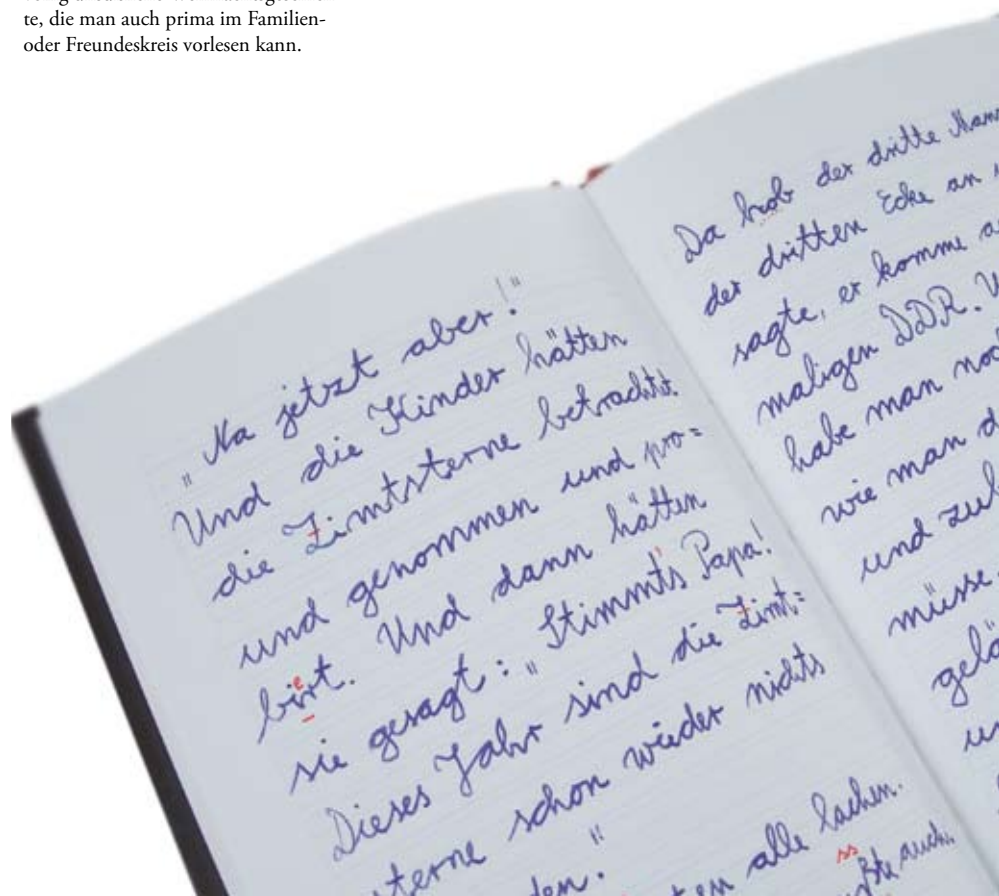 te, die man auch prima im Familien-
oder Freundeskreis vorlesen kann.
"Na jetzt aber!"
Und die Kinder hätten
die Zimtsterne betrachtet
und genommen und pro=
birt. Und dann hätten
e
sie gesagt: "Stimmt's Papa!
Dieses Jahr sind die Zimt=
sterne schon wieder nichts
"
alle lachen.
ss
auch.
Da hob der dritte
der dritten Ecke an
sagte, er komme
maligen DDR.
habe man
wie man
und
müsse